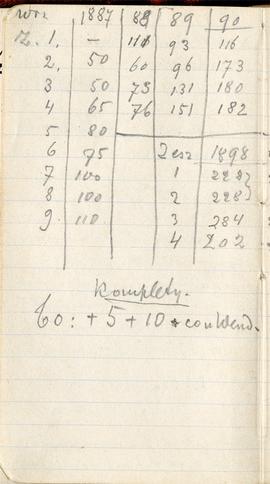 1887 88 89 90
Z. 1. – 111 93 116
2. 50 60 96 173
3 50 73 131 180
4 65 76 151 182
5 80
6 75 Zesz 1898
7 100 1 228
8 100 2 228
9. 110 3 284
4 202
Komplety.
60: + 5 + 10